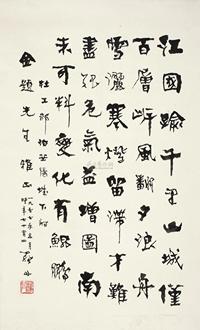 江國踰千里山城僅
百層岸風翻夕浪舟
雪灑寒燈留滯才難
盡艱危氣益增圖南
未可料變化有鯤鵬
杜工部泊岳陽城下
金題先生雅正
一九七